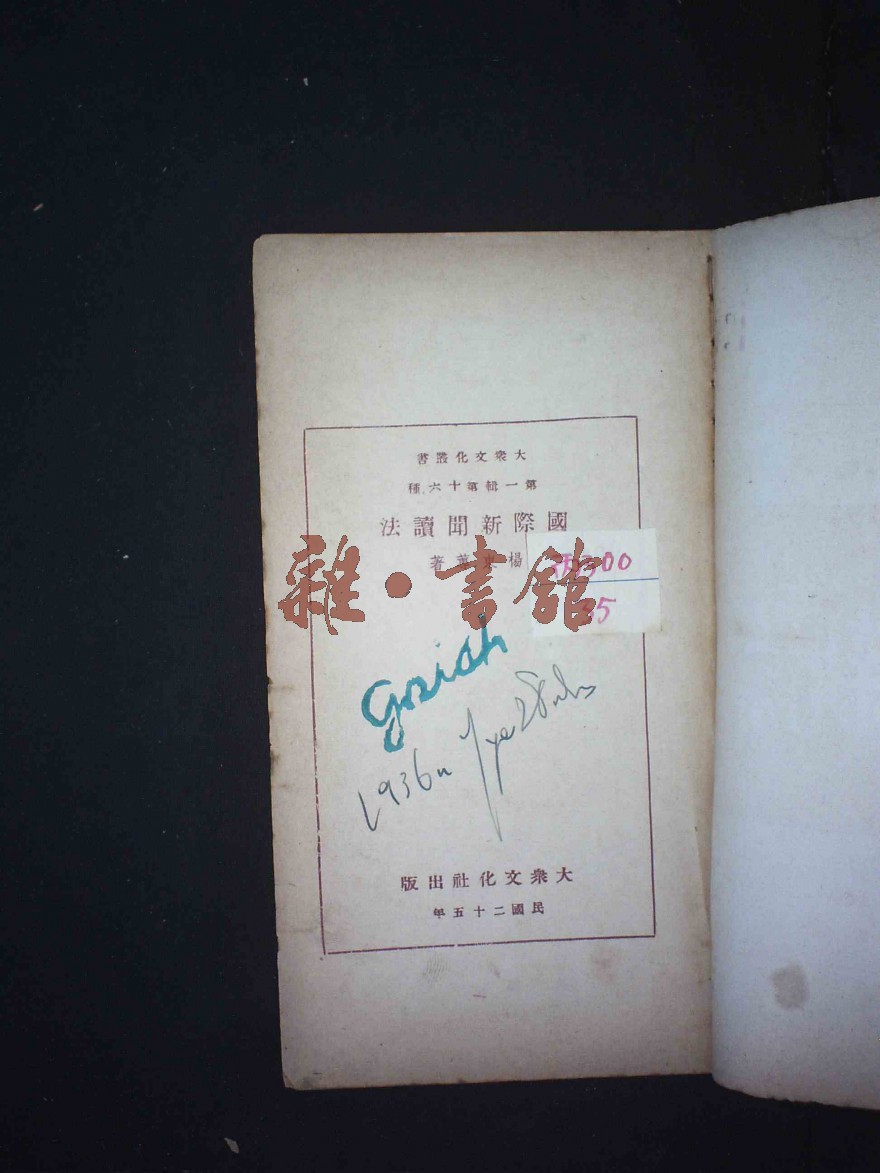 大衆文化叢書
第一輯第十六種
國際新聞讀法
楊 著
雜·書館
00
35
1936
大衆文化社出版
民國二十五年